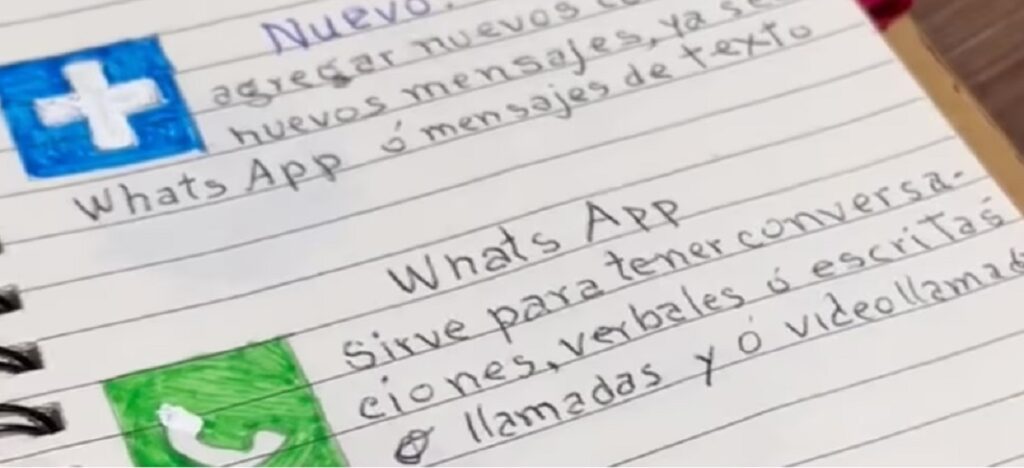 Nuevo.
agregar nuevos
nuevos mensajes, ya
Whats App ó mensajes de texto
Whats App
Sirve para tener conversa-
ciones, verbales ó escritas
llamadas y ó videollamad